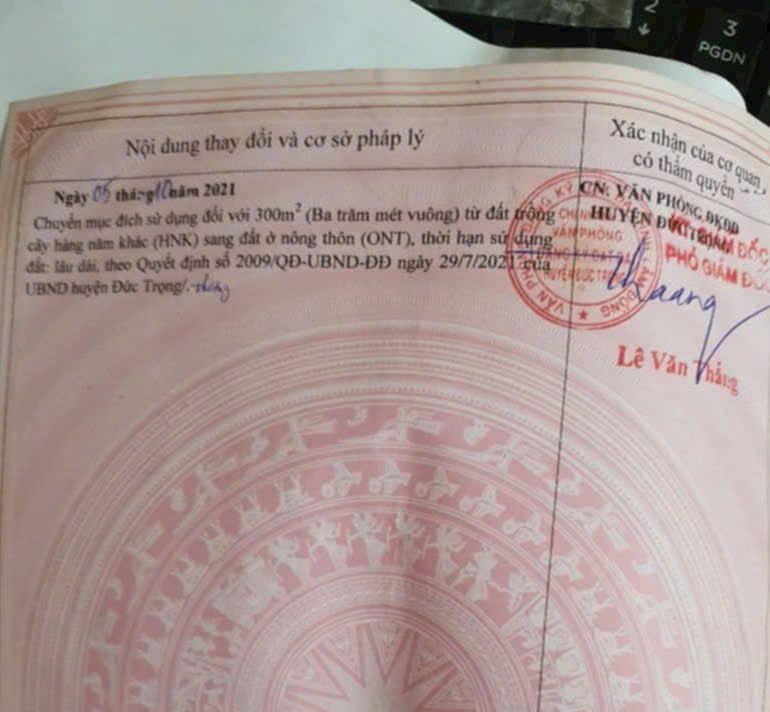 2
↓
3
PGDN
Nội dung thay đổi và cơ sở pháp lý
Xác nhận của cơ quan
có thẩm quyền
Ngày 05 tháng 10 năm 2021
Chuyển mục đích sử dụng đối với 300m² (Ba trăm mét vuông) từ đất trồng
cây hàng năm khác (HNK) sang đất ở nông thôn (ONT), thời hạn sử dụng
đất: lâu dài, theo Quyết định số 2009/QĐ-UBND-ĐĐ ngày 29/7/2021 của
UBND huyện Đức Trọng/.
CN. VĂN PHÒNG ĐKĐĐ
HUYỆN ĐỨC TRỌNG
PHÓ GIÁM ĐỐC
VĂN PHÒNG
LÂM ĐỒNG
Lê Văn Thắng